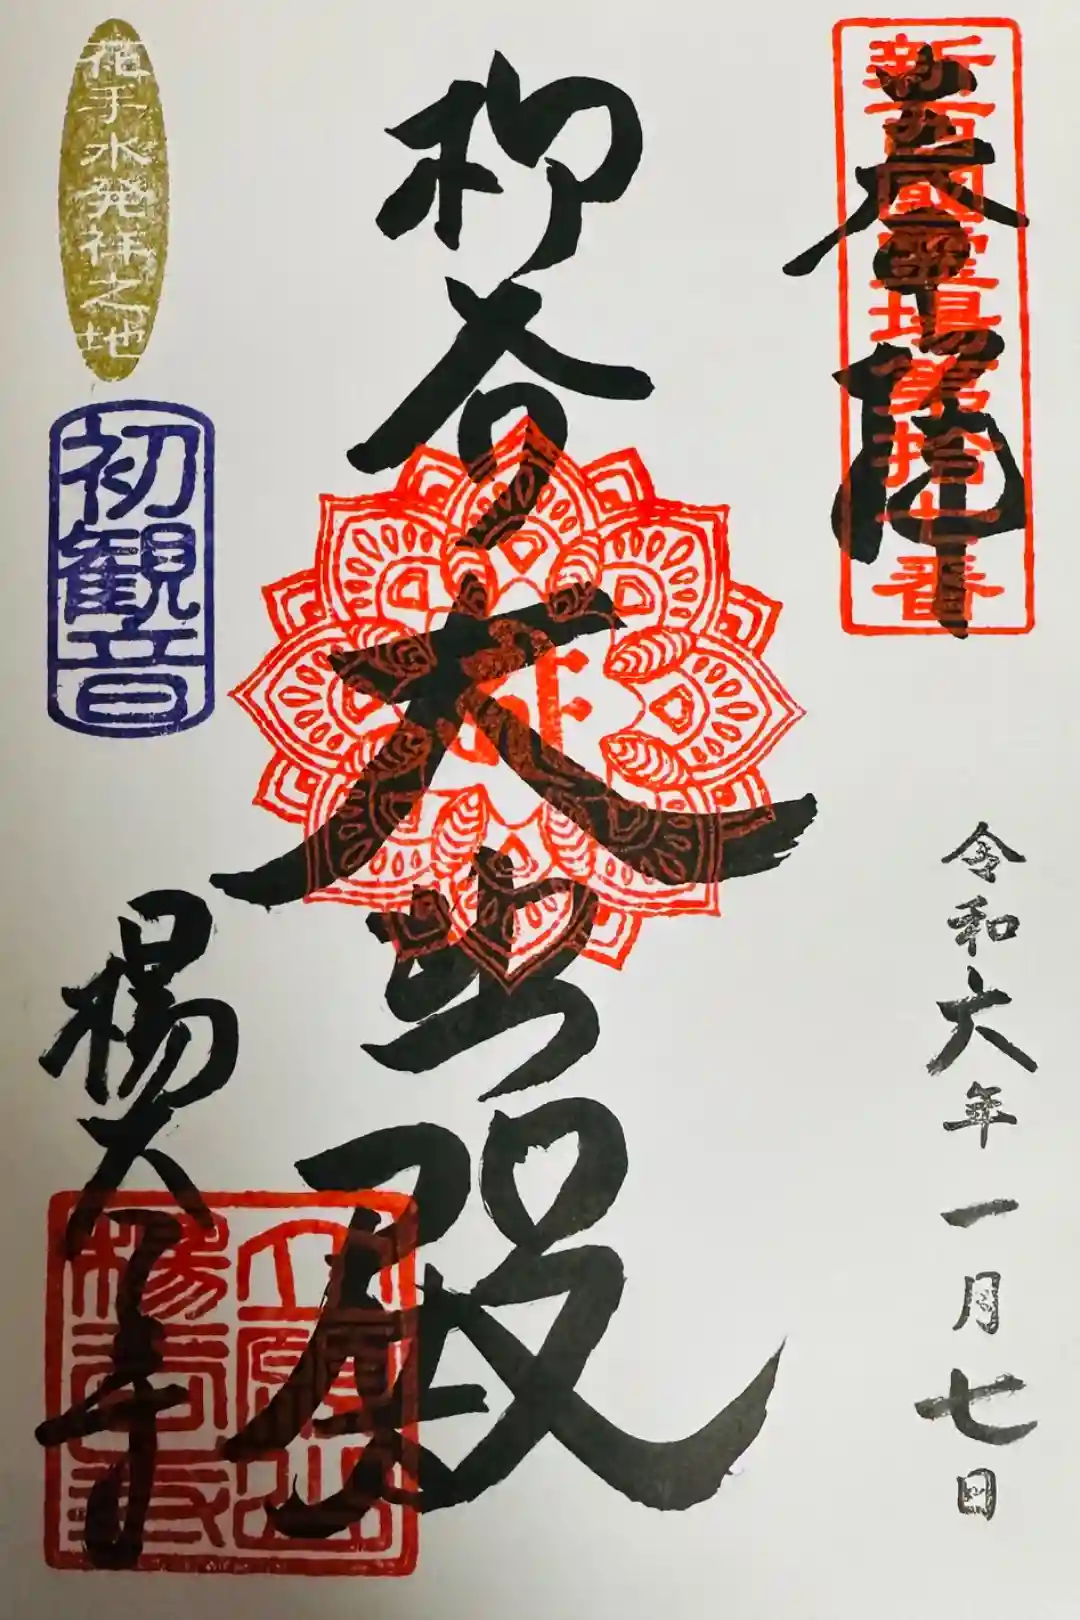 奉拝
新西國霊場第拾七番
令和六年一月七日
柳谷
大悲殿
花手水発祥之地
初観音
楊谷寺
立願山
楊谷寺